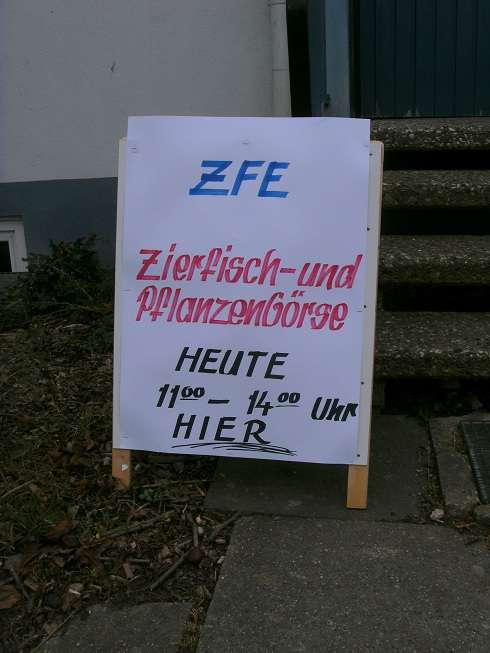 ZFE
Zierfisch-und
Pflanzenbörse
HEUTE
11⁰⁰ - 14⁰⁰ Uhr
HIER